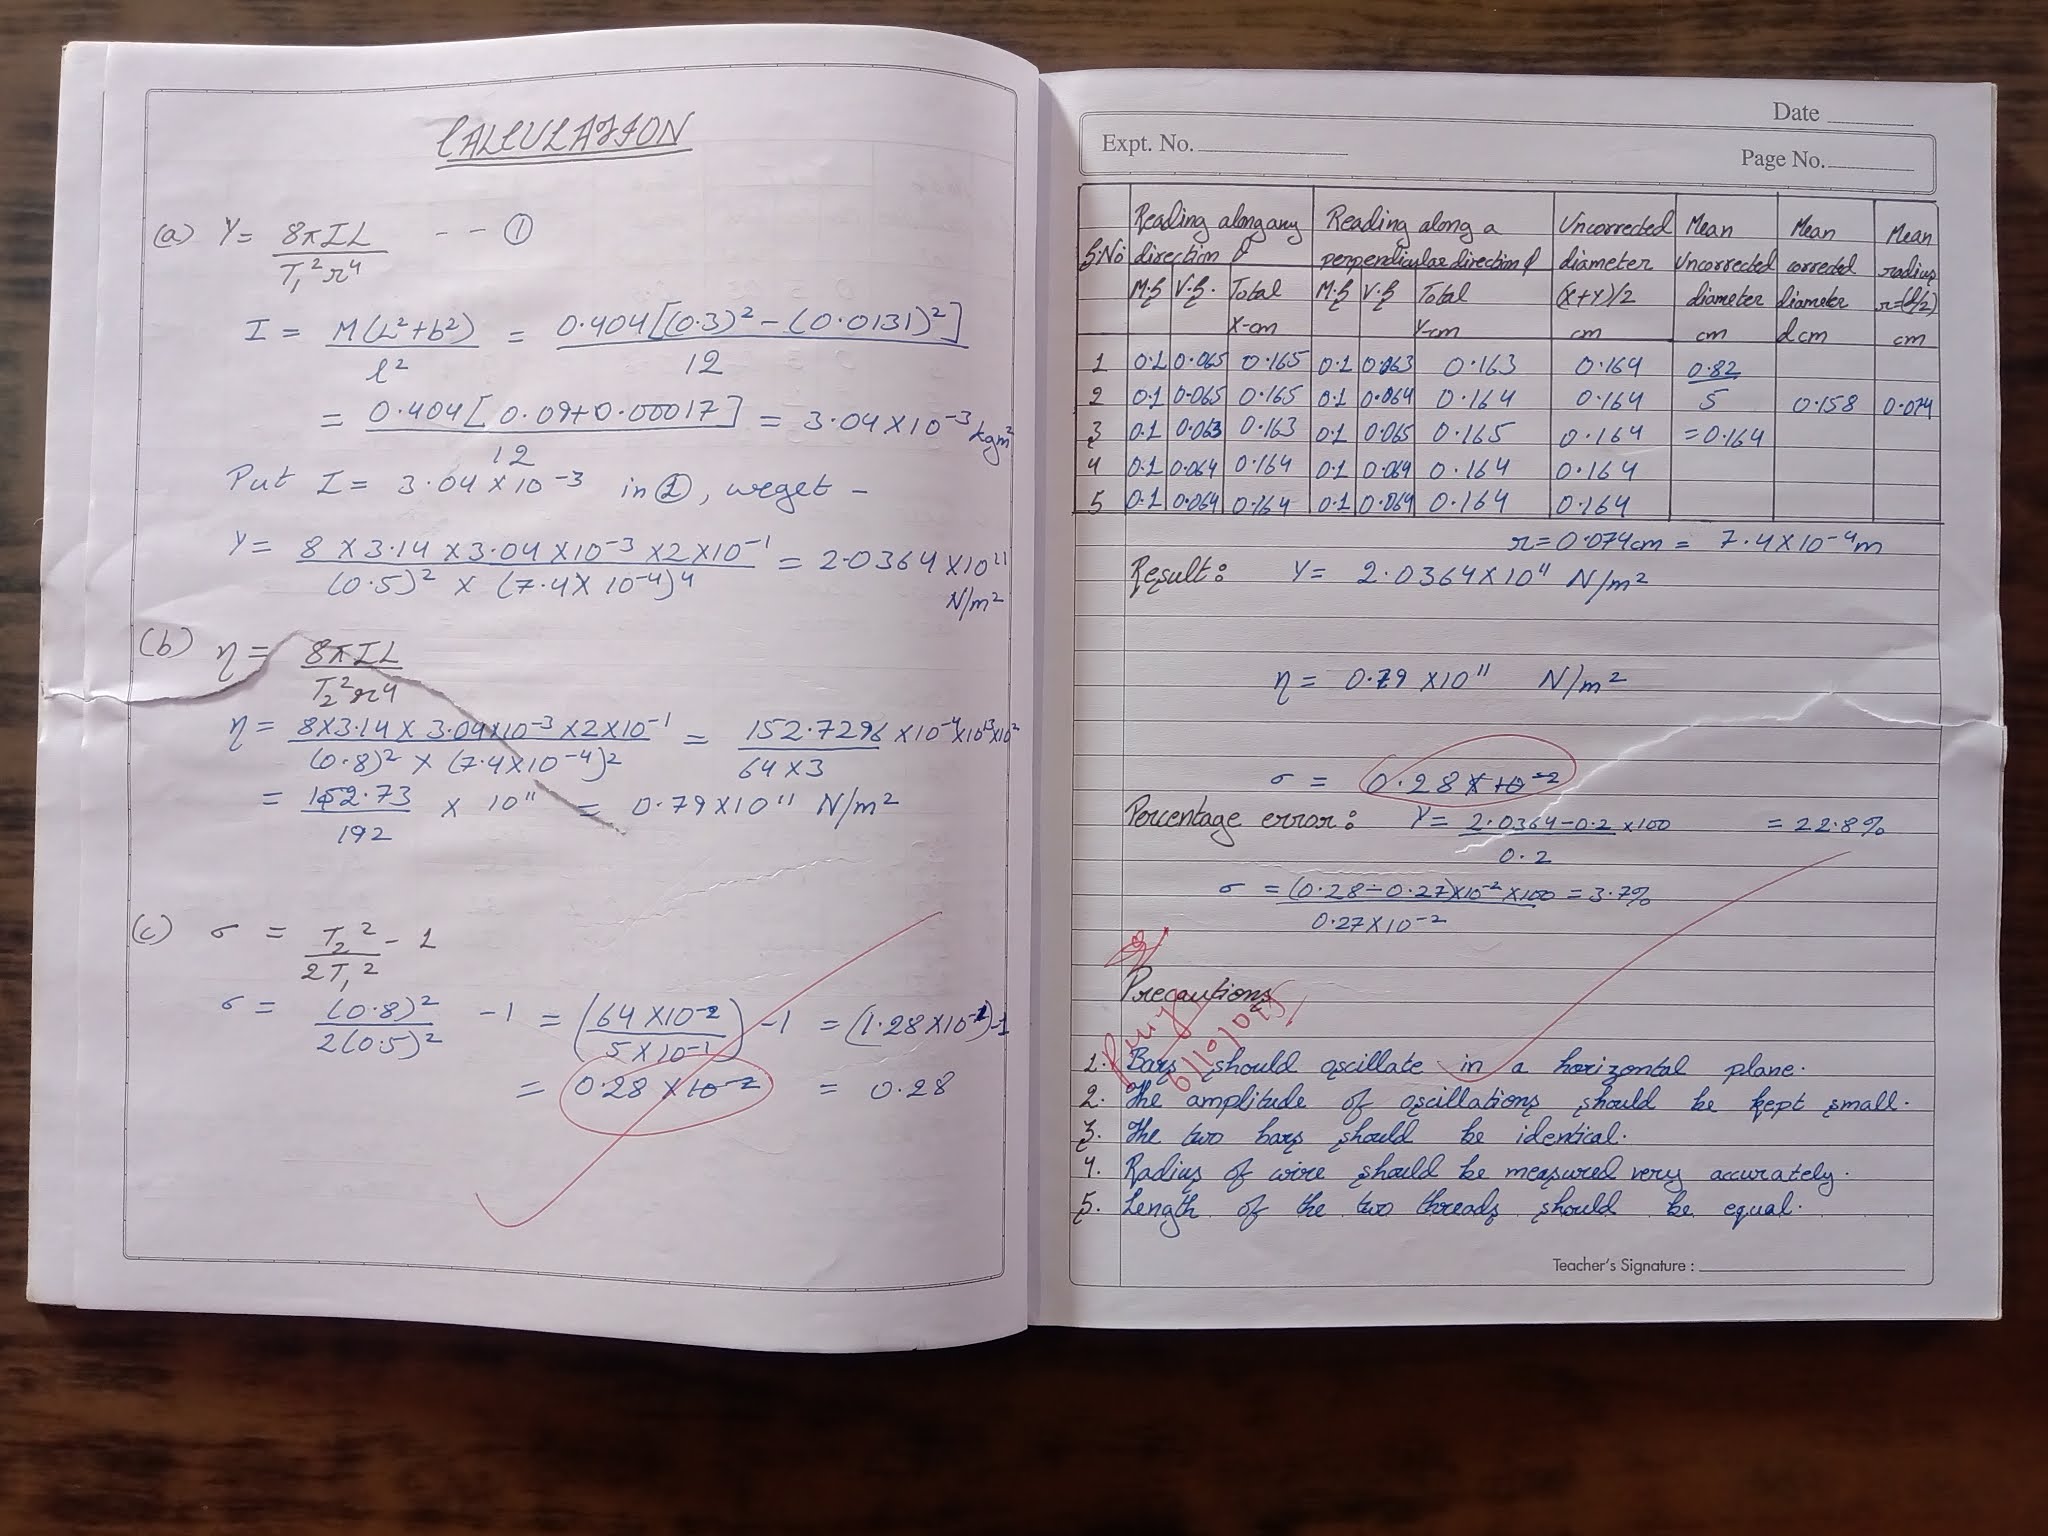 CALCULATION
(a) Y = 8πIL / T₁² r⁴ - - - ①
I = M(L²+b²) / l² = 0.404[(0.3)² - (0.0131)²] / 12
= 0.404[0.09+0.00017] / 12 = 3.04 × 10⁻³ kgm²
Put I = 3.04 × 10⁻³ in ①, we get -
Y = 8 × 3.14 × 3.04 × 10⁻³ × 2 × 10⁻¹ / (0.5)² × (7.4 × 10⁻⁴)⁴ = 2.0364 × 10¹¹ N/m²
(b) η = 8πIL / T₂² r⁴
η = 8×3.14 × 3.04×10⁻³ × 2×10⁻¹ / (0.8)² × (7.4×10⁻⁴)² = 152.7296 / 64 × 3 × 10⁻⁴ × 10¹³ × 10²
= 152.73 / 192 × 10¹¹ = 0.79 × 10¹¹ N/m²
(c) σ = T₂² / 2T₁² - 1
σ = (0.8)² / 2(0.5)² - 1 = (64 × 10⁻² / 5 × 10⁻¹) - 1 = (1.28 × 10⁻¹) - 1
= 0.28 × 10⁻² = 0.28
Date
Expt. No.
Page No.
S.No | Reading along any direction | Reading along a perpendicular direction | Uncorrected diameter (X+Y)/2 cm | Mean Uncorrected diameter cm | Mean corrected diameter d cm | Mean radius r=(d/2) cm
M.S | V.S. | Total X-cm | M.S | V.S | Total Y-cm
1 | 0.1 | 0.065 | 0.165 | 0.1 | 0.063 | 0.163 | 0.164 | 0.82
2 | 0.1 | 0.065 | 0.165 | 0.1 | 0.064 | 0.164 | 0.164 | 5 | 0.158 | 0.074
3 | 0.1 | 0.063 | 0.163 | 0.1 | 0.065 | 0.165 | 0.164 | = 0.164
4 | 0.1 | 0.064 | 0.164 | 0.1 | 0.064 | 0.164 | 0.164
5 | 0.1 | 0.064 | 0.164 | 0.1 | 0.064 | 0.164 | 0.164
r = 0.074cm = 7.4 × 10⁻⁴ m
Result: Y = 2.0364 × 10¹¹ N/m²
η = 0.79 × 10¹¹ N/m²
σ = 0.28 × 10⁻²
Percentage error: Y = 2.0364 - 0.2 / 0.2 × 100 = 22.8%
σ = (0.28 - 0.27) × 10⁻² × 100 / 0.27 × 10⁻² = 3.7%
Precautions
1. Bars should oscillate in a horizontal plane.
2. The amplitude of oscillations should be kept small.
3. The two bars should be identical.
4. Radius of wire should be measured very accurately.
5. Length of the two threads should be equal.
Teacher's Signature :